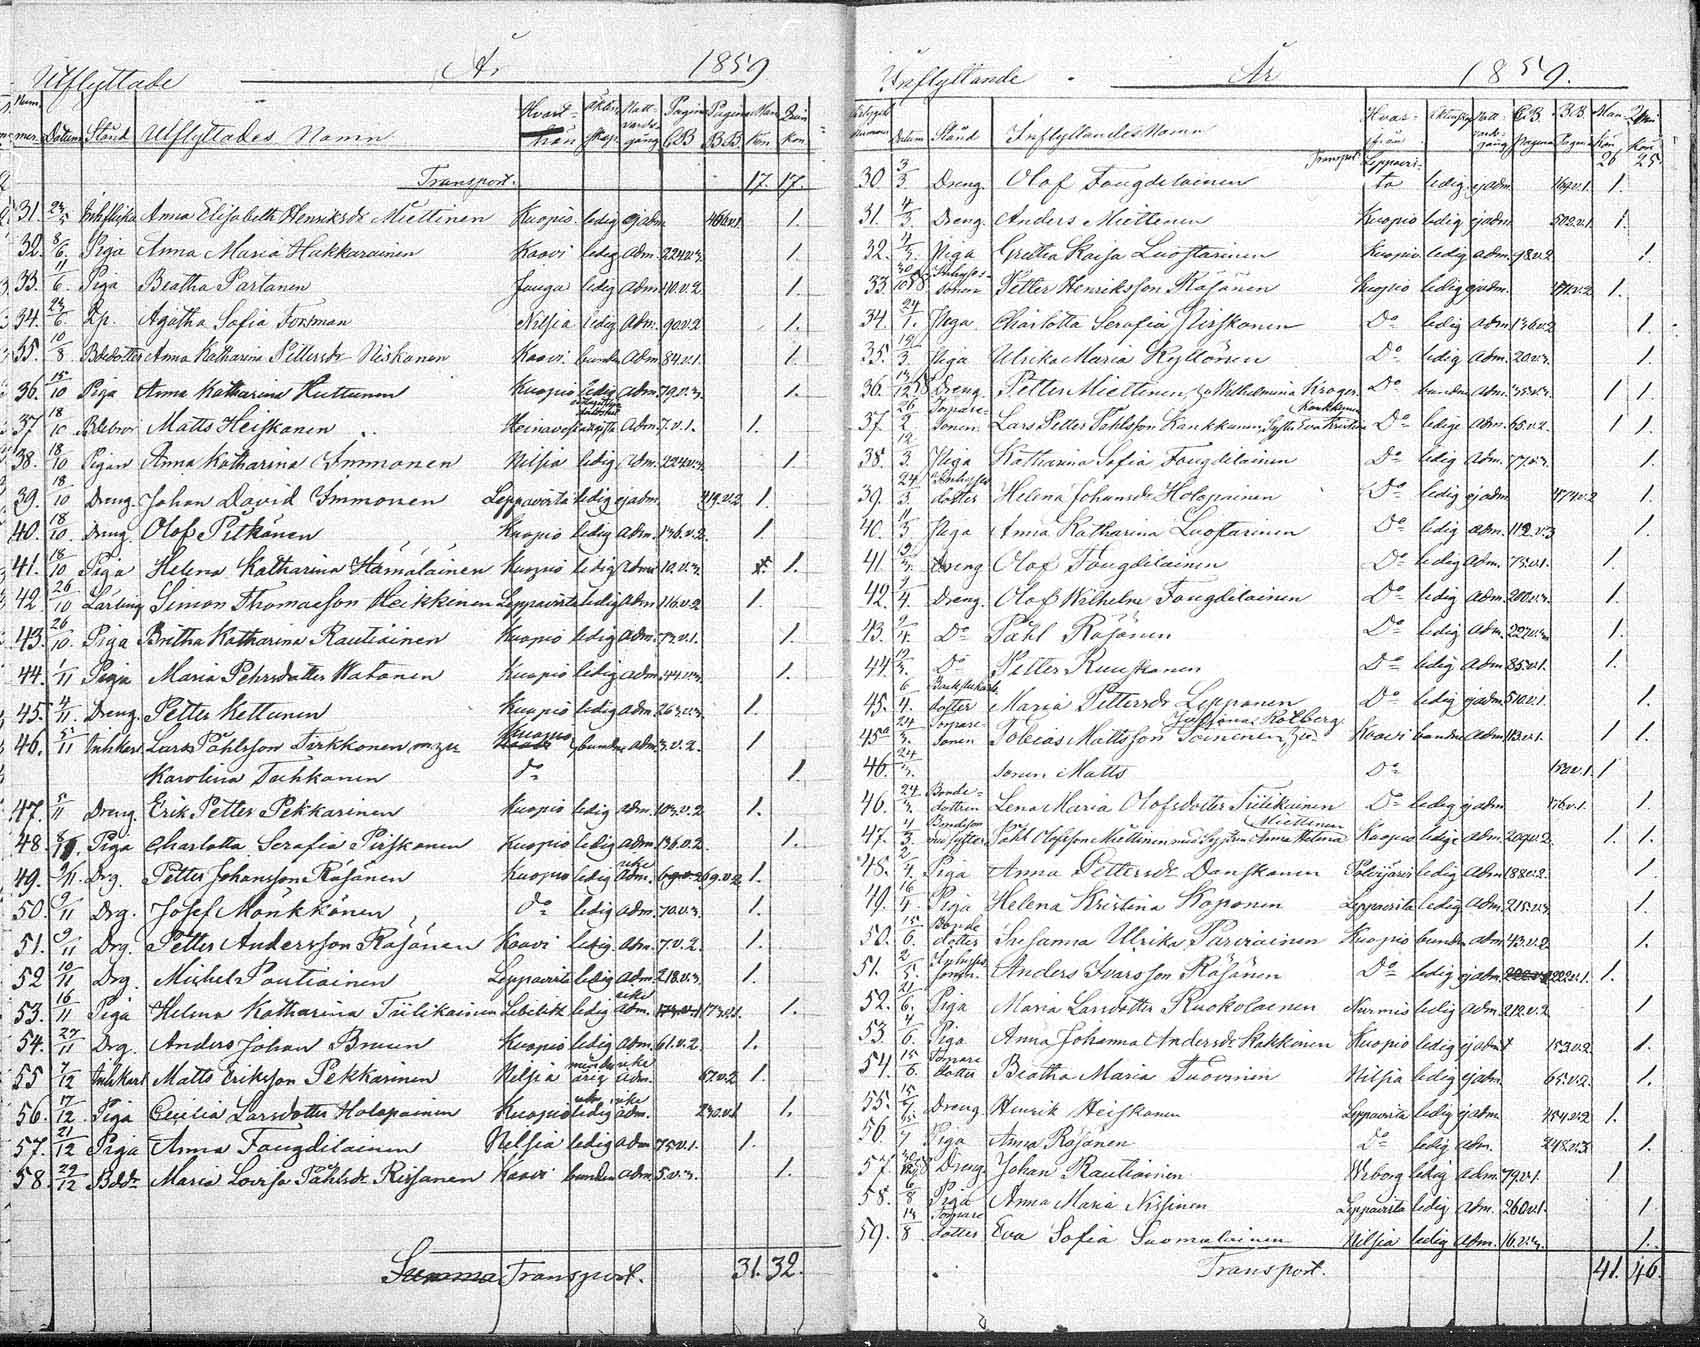 Utflyttade År 1859
Num- mer. Datum Stånd Utflyttades Namn Hvart- hän Äkten- skap. Natt- vards- gång Pagina CB Pagina BB. Man Kön Qvin kön.
Transport. 17. 17.
31. Inhflicka Anna Elisabeth Henriksdr Miettinen Kuopio ledig ejadm. 1.
32. 8/6 Piga Anna Maria Hakkarainen Kaavi ledig adm. 224.v.3. 1.
33. 11/6 Piga Beatha Partanen Jouga ledig adm. 10.v.2. 1.
34. 23/6 Agatha Sofia Forsman Nilsia ledig adm. 90.v.2 1.
35. 10/8 Bdedotter Anna Katharina Pettersdr Niskanen Kaavi bunden adm. 84.v.1. 1.
36. 15/10 Piga Anna Katharina Huttunen Kuopio ledig adm. 79.v.3. 1.
37 18/10 Matts Heiskanen Heinävesi adm. 7.v.1. 1.
38. 18/10 Pigan Anna Katharina Immonen Nilsia ledig adm. 224.v.3. 1.
39. 18/10 Dreng. Johan David Immonen Leppävirta ledig ejadm. 219.v.2 1.
40. 18/10 Dreng. Olof Pitkänen Kuopio ledig adm. 136.v.2. 1.
41. 18/10 Piga Helena Katharina Hämäläinen Kuopio ledig adm. 10.v.3. 1.
42 26/10 Lärling Simon Thomasson Heikkinen Leppävirta ledig adm. 116.v.2 1.
43. 26/10 Piga Britha Katharina Rautiainen Kuopio ledig adm. 1.
44. 1/11 Piga Maria Pehrsdotter Watanen Kuopio ledig adm. 44.v.3. 1.
45. 4/11. Dreng. Petter Kettunen Kuopio ledig adm. 263.v.3. 1.
46. 5/11 Inhkarl Lars Påhlsson Tirkkonen Kuopio bunden adm. 3.v.2. 1.
Karolina Tuhkanen do 1.
47. 5/11 Dreng. Erik Petter Pekkarinen Kuopio ledig adm. 103.v.2 1.
48. 8/11. Piga Charlotta Serafia Pirskanen Kuopio ledig adm. 136.v.2. 1.
49. 9/11. Drg. Petter Johansson Räsänen Kuopio ledig icke adm. 69.v.2 1.
50. 9/11 Drg. Josef Mönkkönen do ledig adm. 70.v.3. 1.
51. 9/11 Drg. Petter Andersson Räsänen Kaavi ledig adm. 7.v.2. 1.
52 10/11 Drg. Michel Poutiainen Leppävirta ledig adm. 218.v.3. 1.
53. 16/11 Piga Helena Katharina Tiilikainen Libelits ledig icke adm. 173.v.1. 1.
54. 27/11 Drg. Anders Johan Bruun Kuopio ledig adm. 61.v.2. 1.
55 7/12 Inhkarl Matts Eriksson Pekkarinen Nilsia minderårig icke adm. 67.v.2 1.
56. 17/12 Piga Cecilia Larsdotter Holopainen Kuopio ledig icke adm. 230.v.1 1.
57. 21/12 Piga Anna Fougdilainen Nilsia ledig adm 75.v.1. 1.
58. 29/12 Bddr Maria Lovisa Påhlsdr Rissanen Kaavi bunden adm. 5.v.3. 1.
Summa Transport. 31. 32.
Inflyttande År 1859.
Datum Stånd Inflyttandes Namn Hvar- ifrån Äktenskap Natt- vards- gång CB Pagina BB Pagina Man Kön Qvin kön
Transport. 26 25.
30 3/3. Dreng. Olof Fougdelainen Leppävirta ledig ejadm. 169.v.1. 1.
31. 4/3. Dreng. Anders Miettinen Kuopio ledig ejadm. 502.v.1. 1.
32. 4/3. Piga Gretha Kaisa Luostarinen Kuopio ledig adm. 98.v.2 1.
33. Inhyses- sonen Petter Henriksson Räsänen Kuopio ledig ejadm. 1.
34. 24/1. Piga Charlotta Serafia Pirskanen Do ledig adm. 136.v.2 1.
35. 12/3. Piga Ulrika Maria Kyllönen Do ledig adm. 20.v.3. 1.
36. Dreng. Petter Miettinen Wilhelmina Kröger Do bunden adm. 1 1.
37 26/2 Torpare- sonen Lars Petter Påhlsson Kankkunen, Syster Eva Kristina Kankkunen Do ledige adm. 65.v.2. 1 1.
38. 12/3. Piga Katharina Sofia Fougdelainen Do ledig adm. 77.v.3. 1.
39. 24/3 Inhyses dotter Helena Johansdr Holopainen Do ledig ejadm. 474.v.2 1.
40. 11/3 Piga Anna Katharina Luostarinen Do ledig adm. 112.v.3 1.
41 Dreng Olof Fougdelainen Do ledig adm. 73.v.1. 1.
42. Dreng. Olof Wilhelm Fougdelainen Do ledig adm. 200.v.3. 1.
43. Do Påhl Räsänen Do ledig adm. 227.v.3. 1.
44 12/3. Do Petter Ruuskanen Do ledig adm. 85.v.1. 1.
45. 6/4. dotter Maria Pettersdr Lipponen Do ledig ejadm. 510.v.1. 1.
45a 24/3. Torpare- sonen Tobias Mattsson Toivanen, Kolberg Kaavi bunden adm. 113.v.1. 1 1.
46. 24/3. sonen Matts Do 130.v.1. 1
46. 24/3. Bonde- dottren Lena Maria Olofsdotter Tiilikainen Do ledig ejadm. 176.v.1. 1.
47. 4/3 Bondeson med syster Påhl Olofsson Miettinen med Systern Anna Helena Miettinen Kuopio ledige adm. 209.v.2. 1. 1.
48. 2/4. Piga Anna Pettersdr Danskanen Polvijärvi ledig adm. 188.v.2. 1.
49. 16/4. Piga Helena Kristina Koponen Leppävirta ledig adm. 215.v.3. 1.
50. 15/6. Bonde dotter Susanna Ulrika Parviainen Kuopio bunden adm. 43.v.2 1.
51. 2/5. Inhyses- sonen Anders Ivarsson Räsänen Do ledig ejadm. 222.v.1. 1.
52. 21/6. Piga Maria Larsdotter Ruokolainen Nurmis ledig adm. 212.v.2. 1
53. 4/6. Piga Anna Johanna Andersdr Kakkinen Kuopio ledig ejadm 153.v.2. 1.
54. 15/6. Torpare dotter Beatha Maria Tuovinen Nilsia ledig ejadm. 65.v.2. 1.
55. Dreng Henrik Heiskanen Leppävirta ledig ejadm. 454.v.2 1.
56. Piga Anna Räsänen Do ledig adm. 248.v.3. 1.
57. Dreng Johan Rautiainen Wiborg ledig adm. 79.v.1. 1
58. 6/8 Piga Anna Maria Nissinen Leppävirta ledig adm. 260.v.1. 1
59. 14/8 Torpare dotter Eva Sofia Suomalainen Nilsia ledig adm. 16.v.3. 1.
Transport. 41. 46.